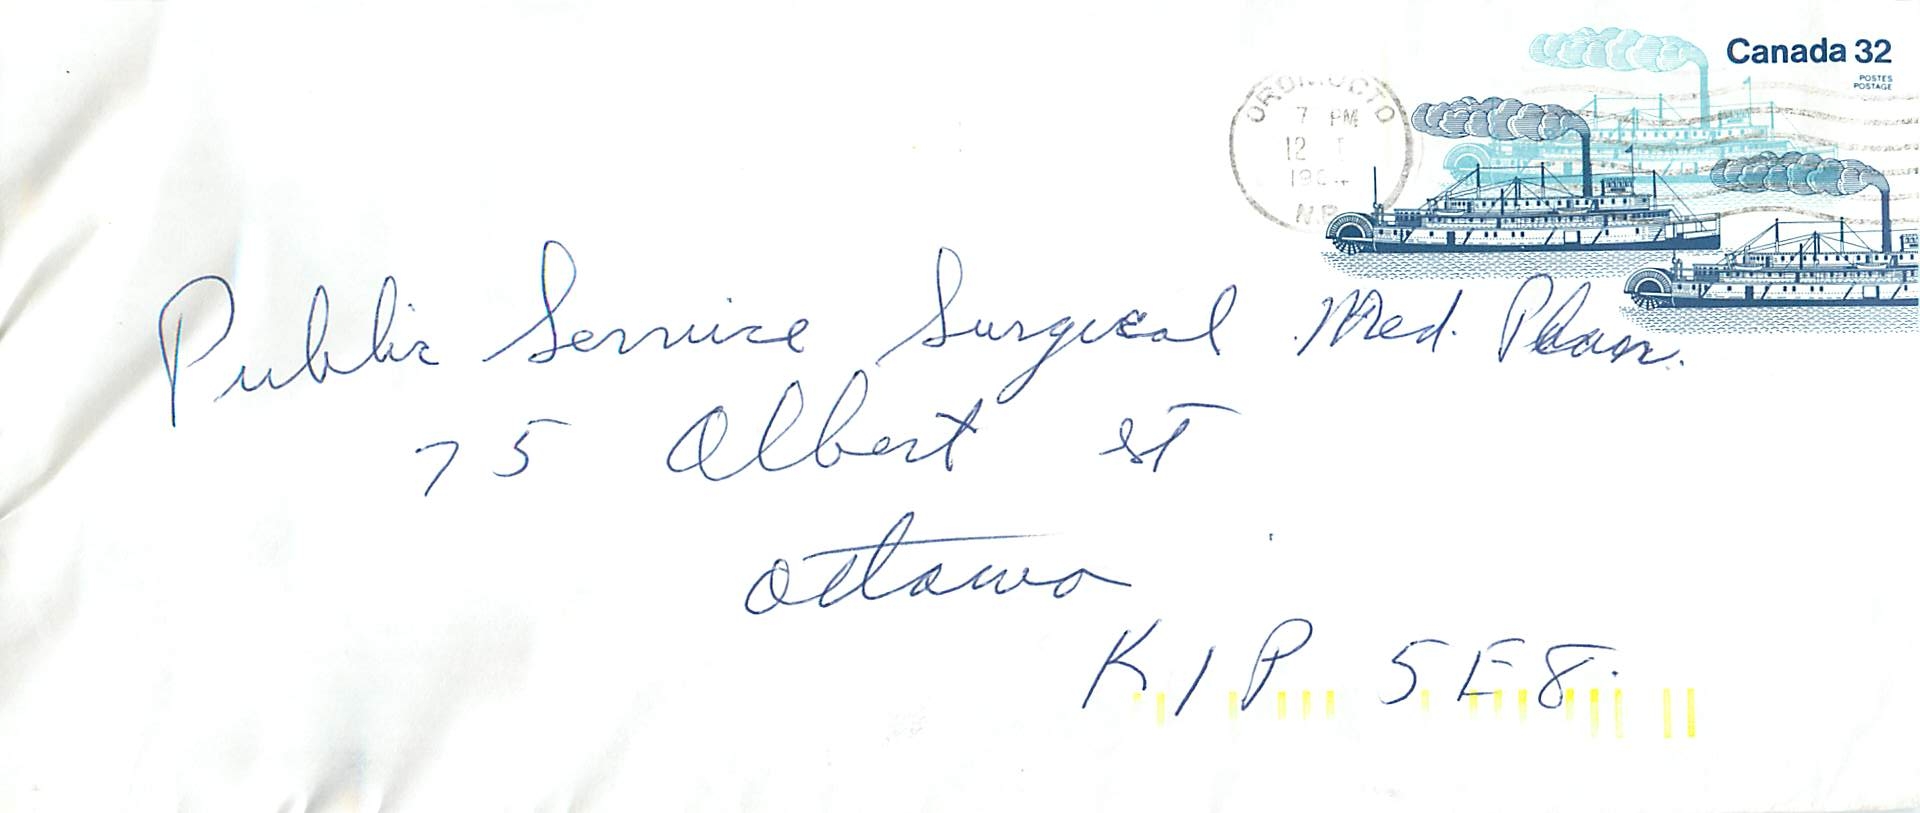 Canada 32
POSTES
POSTAGE
OROMOCTO
7 PM
12
N.B.
Public Service Surgical Med. Plan.
75 Albert St
Ottawa
K1P 5E8.